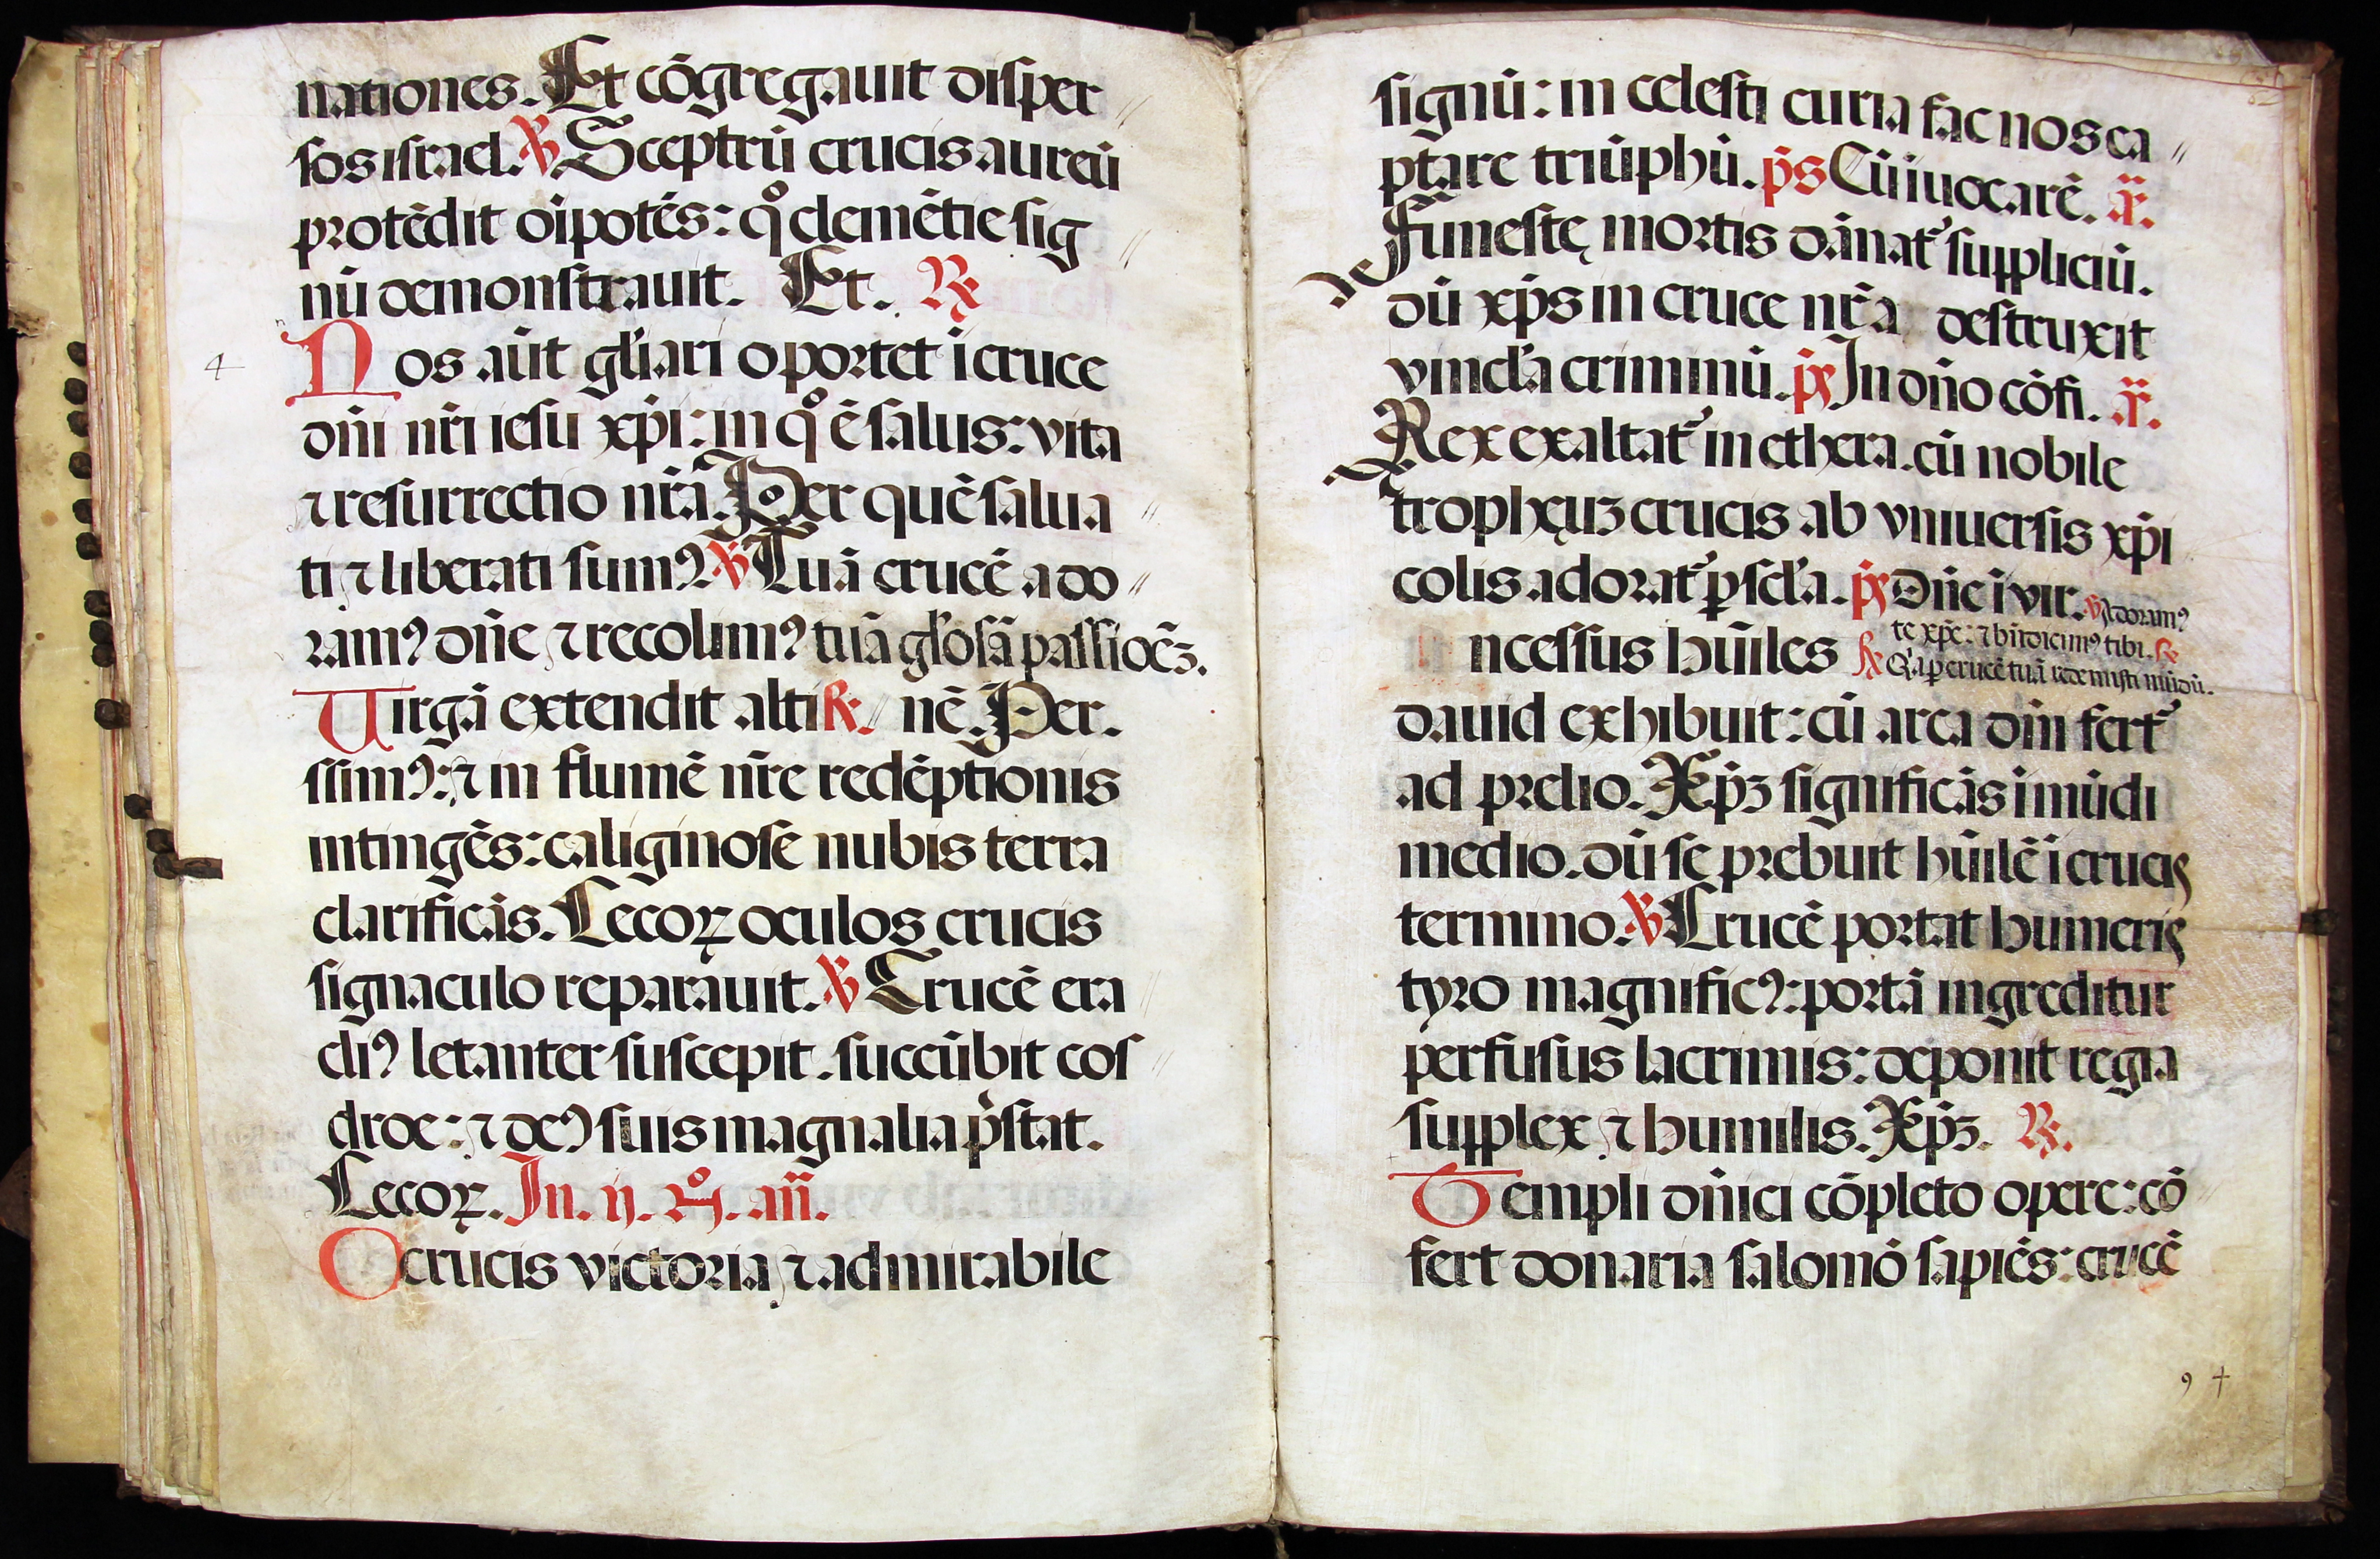 nationes. Et cōgregauit diſper
ſos iſrael. ℣ Sceptrū crucis aureū
protēdit oīpotēs: qͦ clemētie ſig
nū demonſtrauit. Et. ℟
4
Nos aūt gl'iari oportet ī cruce
dn̄i nr̄i ieſu xp̄i: in qͦ ē ſalus: vita
⁊ reſurrectio nr̄a. Per quē ſalua
ti ⁊ liberati ſumꝰ. ℣ Tuā crucē ado
ramꝰ dn̄e ⁊ recolimꝰ tuā gl'oſā paſſioēꝫ.
Uirgā extendit alti ℟. nē. Per.
ſſimꝰ: ⁊ in flumē nr̄e redēptionis
intingēs: caliginoſe nubis terra
clarificās. Cecoꝝ oculos crucis
ſignaculo reparauit. ℣ Crucē era
cliꝰ letanter ſuſcepit. ſuccūbit coſ
droe: ⁊ deꝰ ſuis magnalia p̄ſtat.
Cecoꝝ. In. ij. nͦ. an̄.
O crucis victoria ⁊ admirabile
ſignū: in celeſti curia fac nos ca
ptare triūphū. p̄s Cū īuocarē. an̄.
de
Funeſtę mortis dānat᷑ ſuppliciū.
dū xp̄s in cruce nr̄a deſtruxit
vincl'a criminū. p̄s In dn̄o cōfi. an̄.
Rex exaltat᷑ in ethera. cū nobile
trophęuꝫ crucis ab vniuerſis xp̄i
colis adorat᷑ ꝑ ſcl'a. p̄s Dn̄e ī vir. ℣ Adoramꝰ
te xp̄e: ⁊ bn̄dicimꝰ tibi. ℟
Inceſſus hūiles ℟ Q'a ꝑ crucē tuā redemiſti mūdū.
dauid exhibuit: cū arca dn̄i fert᷑
ad prelio. Xp̄ꝫ ſignificās ī mūdi
medio. dū ſe prebuit hūilē ī crucis
termino. ℣ Crucē portat humeris
tyro magnificꝰ: portā ingreditur
perfuſus lacrimis: deponit regia
ſupplex ⁊ humilis. Xp̄ꝫ. ℟.
Templi dn̄ici cōpleto opere: cō
fert donaria ſalomō ſapiēs: crucē
9 +